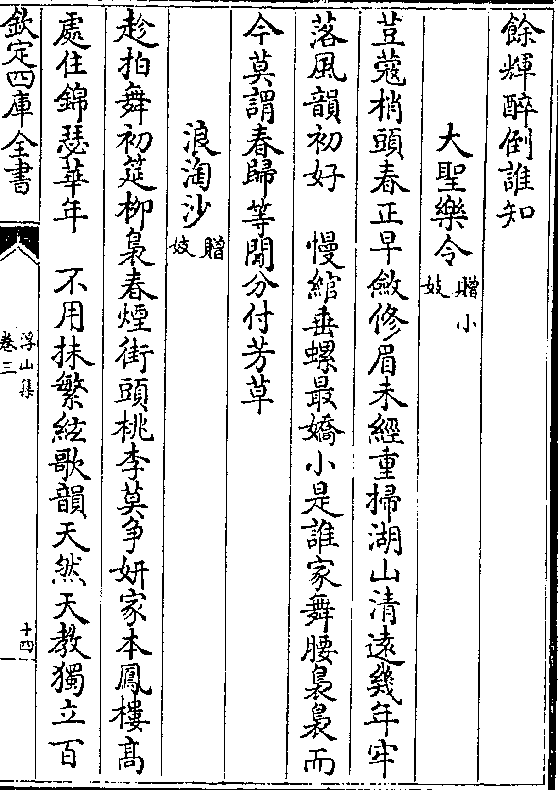 餘輝醉倒誰知
大聖樂令贈小妓
荳蔻梢頭春正早斂修眉未經重掃湖山清遠幾年牢
落風韻初好　慢綰垂螺最嬌小是誰家舞腰裊裊而
今莫謂春歸等閒分付芳草
浪淘沙贈妓
趁拍舞初筵柳裊春煙街頭桃李莫爭妍家本鳳樓高
處住錦瑟華年　不用抹繁絃歌韻天然天教獨立百
欽定四庫全書
浮山集
卷三
十四